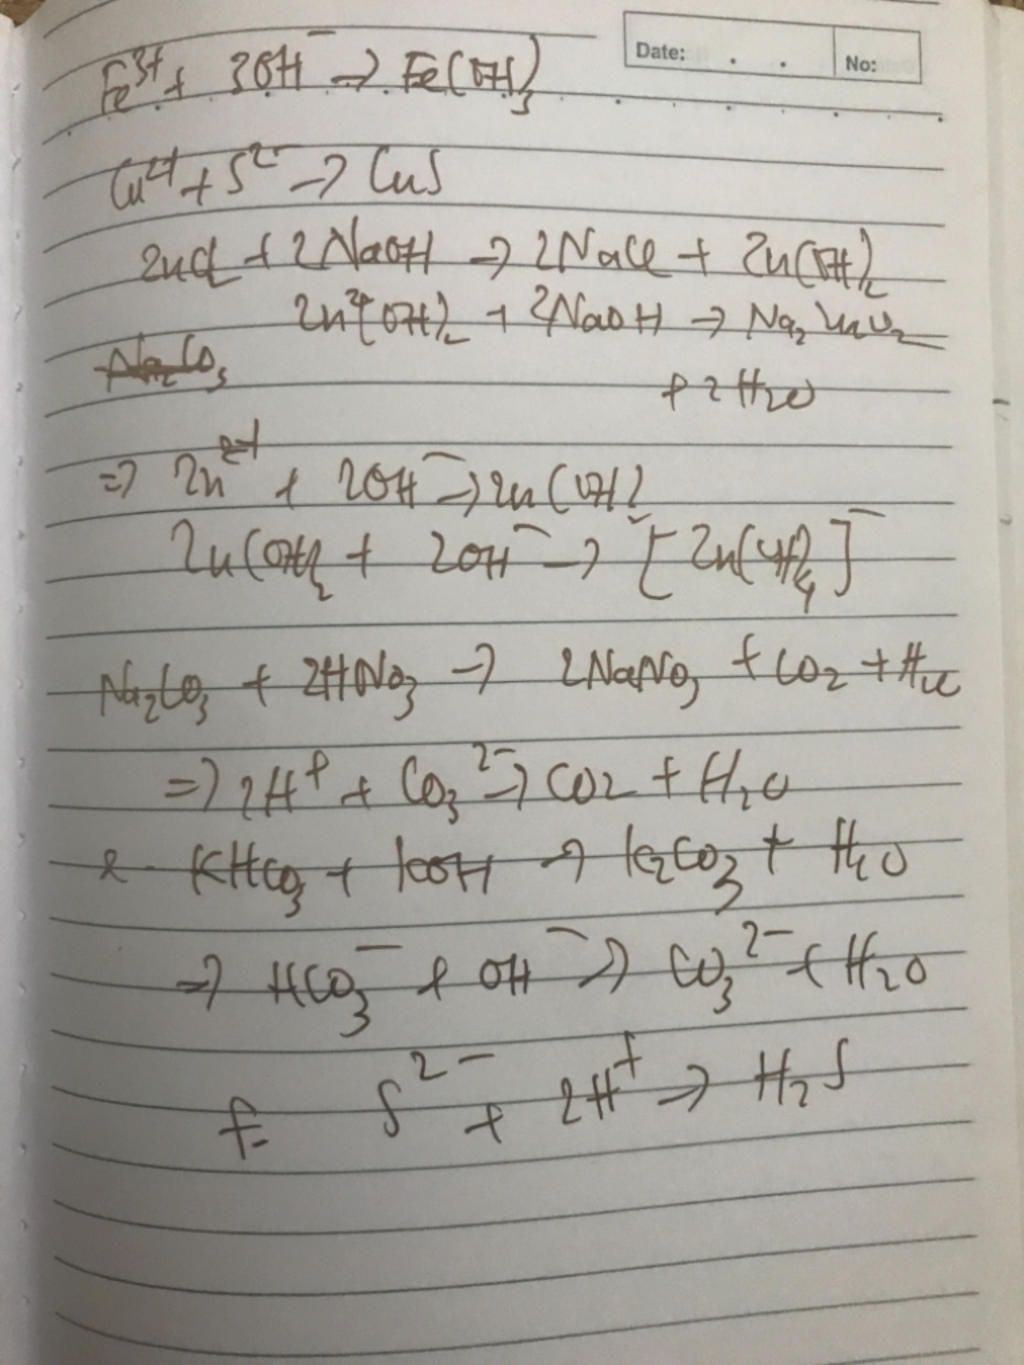 Date: . . No:
Fe³⁺ + 3OH⁻ → Fe(OH)₃
Cu²⁺ + S²⁻ → CuS
ZnCl₂ + 2NaOH → 2NaCl + Zn(OH)₂
Zn²⁺(OH)₂ + 2NaOH → Na₂ZnO₂
Na₂CO₃
+ 2H₂O
=> Zn²⁺ + 2OH⁻ → Zn(OH)₂
Zn(OH)₂ + 2OH⁻ → [Zn(OH)₄]⁻
Na₂CO₃ + 2HNO₃ → 2NaNO₃ + CO₂ + H₂O
=> 2H⁺ + CO₃²⁻ → CO2 + H₂O
e - KHCO₃ + KOH → K₂CO₃ + H₂O
=> HCO₃⁻ + OH⁻ → CO₃²⁻ + H₂O
f- S²⁻ + 2H⁺ → H₂S